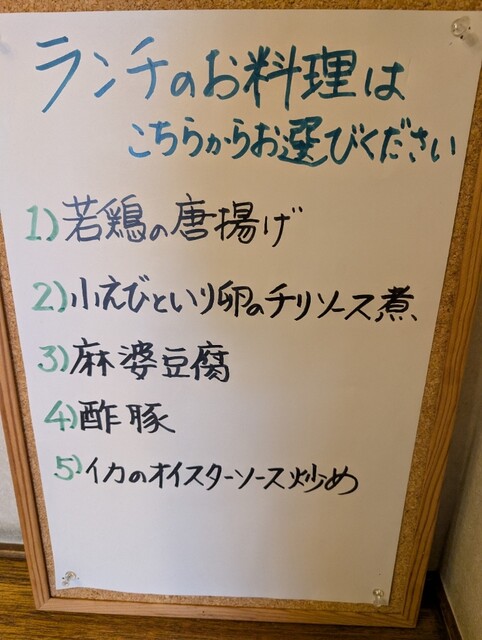 ランチのお料理は
こちらからお選びください
1)若鶏の唐揚げ
2)小えびといり卵のチリソース煮
3)麻婆豆腐
4)酢豚
5)イカのオイスターソース炒め